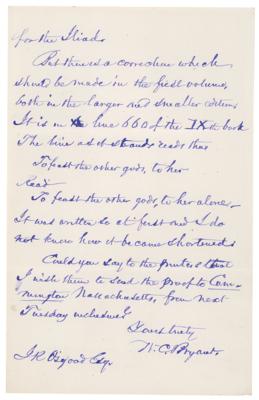 for the Iliad.
But there is a correction which
should be made in the first volume,
both in the larger and smaller editions
It is in line 660 of the IXth book
The line as it stands reads thus
To feast the other gods, to her
Read
To feast the other gods, to her alone—
It was written so at first and I do
not know how it became shortened
Could you say to the printers that
I wish them to send the proof to Cum-
mington Massachusetts, from next
Tuesday inclusive?
Yours truly
W. C. Bryant
J. R. Osgood Esq.